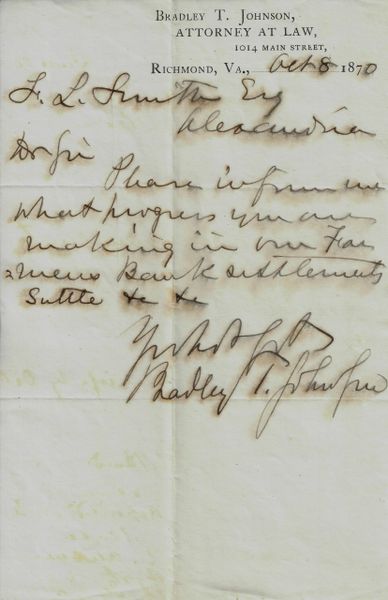 BRADLEY T. JOHNSON,
ATTORNEY AT LAW,
1014 MAIN STREET,
RICHMOND, VA., Oct 8 1870
F. L. Smith Esq
Alexandria
Dr Sir
Please inform me
what progress you are
making in our Far
mers Bank settlements
Suttle &c &c
Bradley T. Johnson